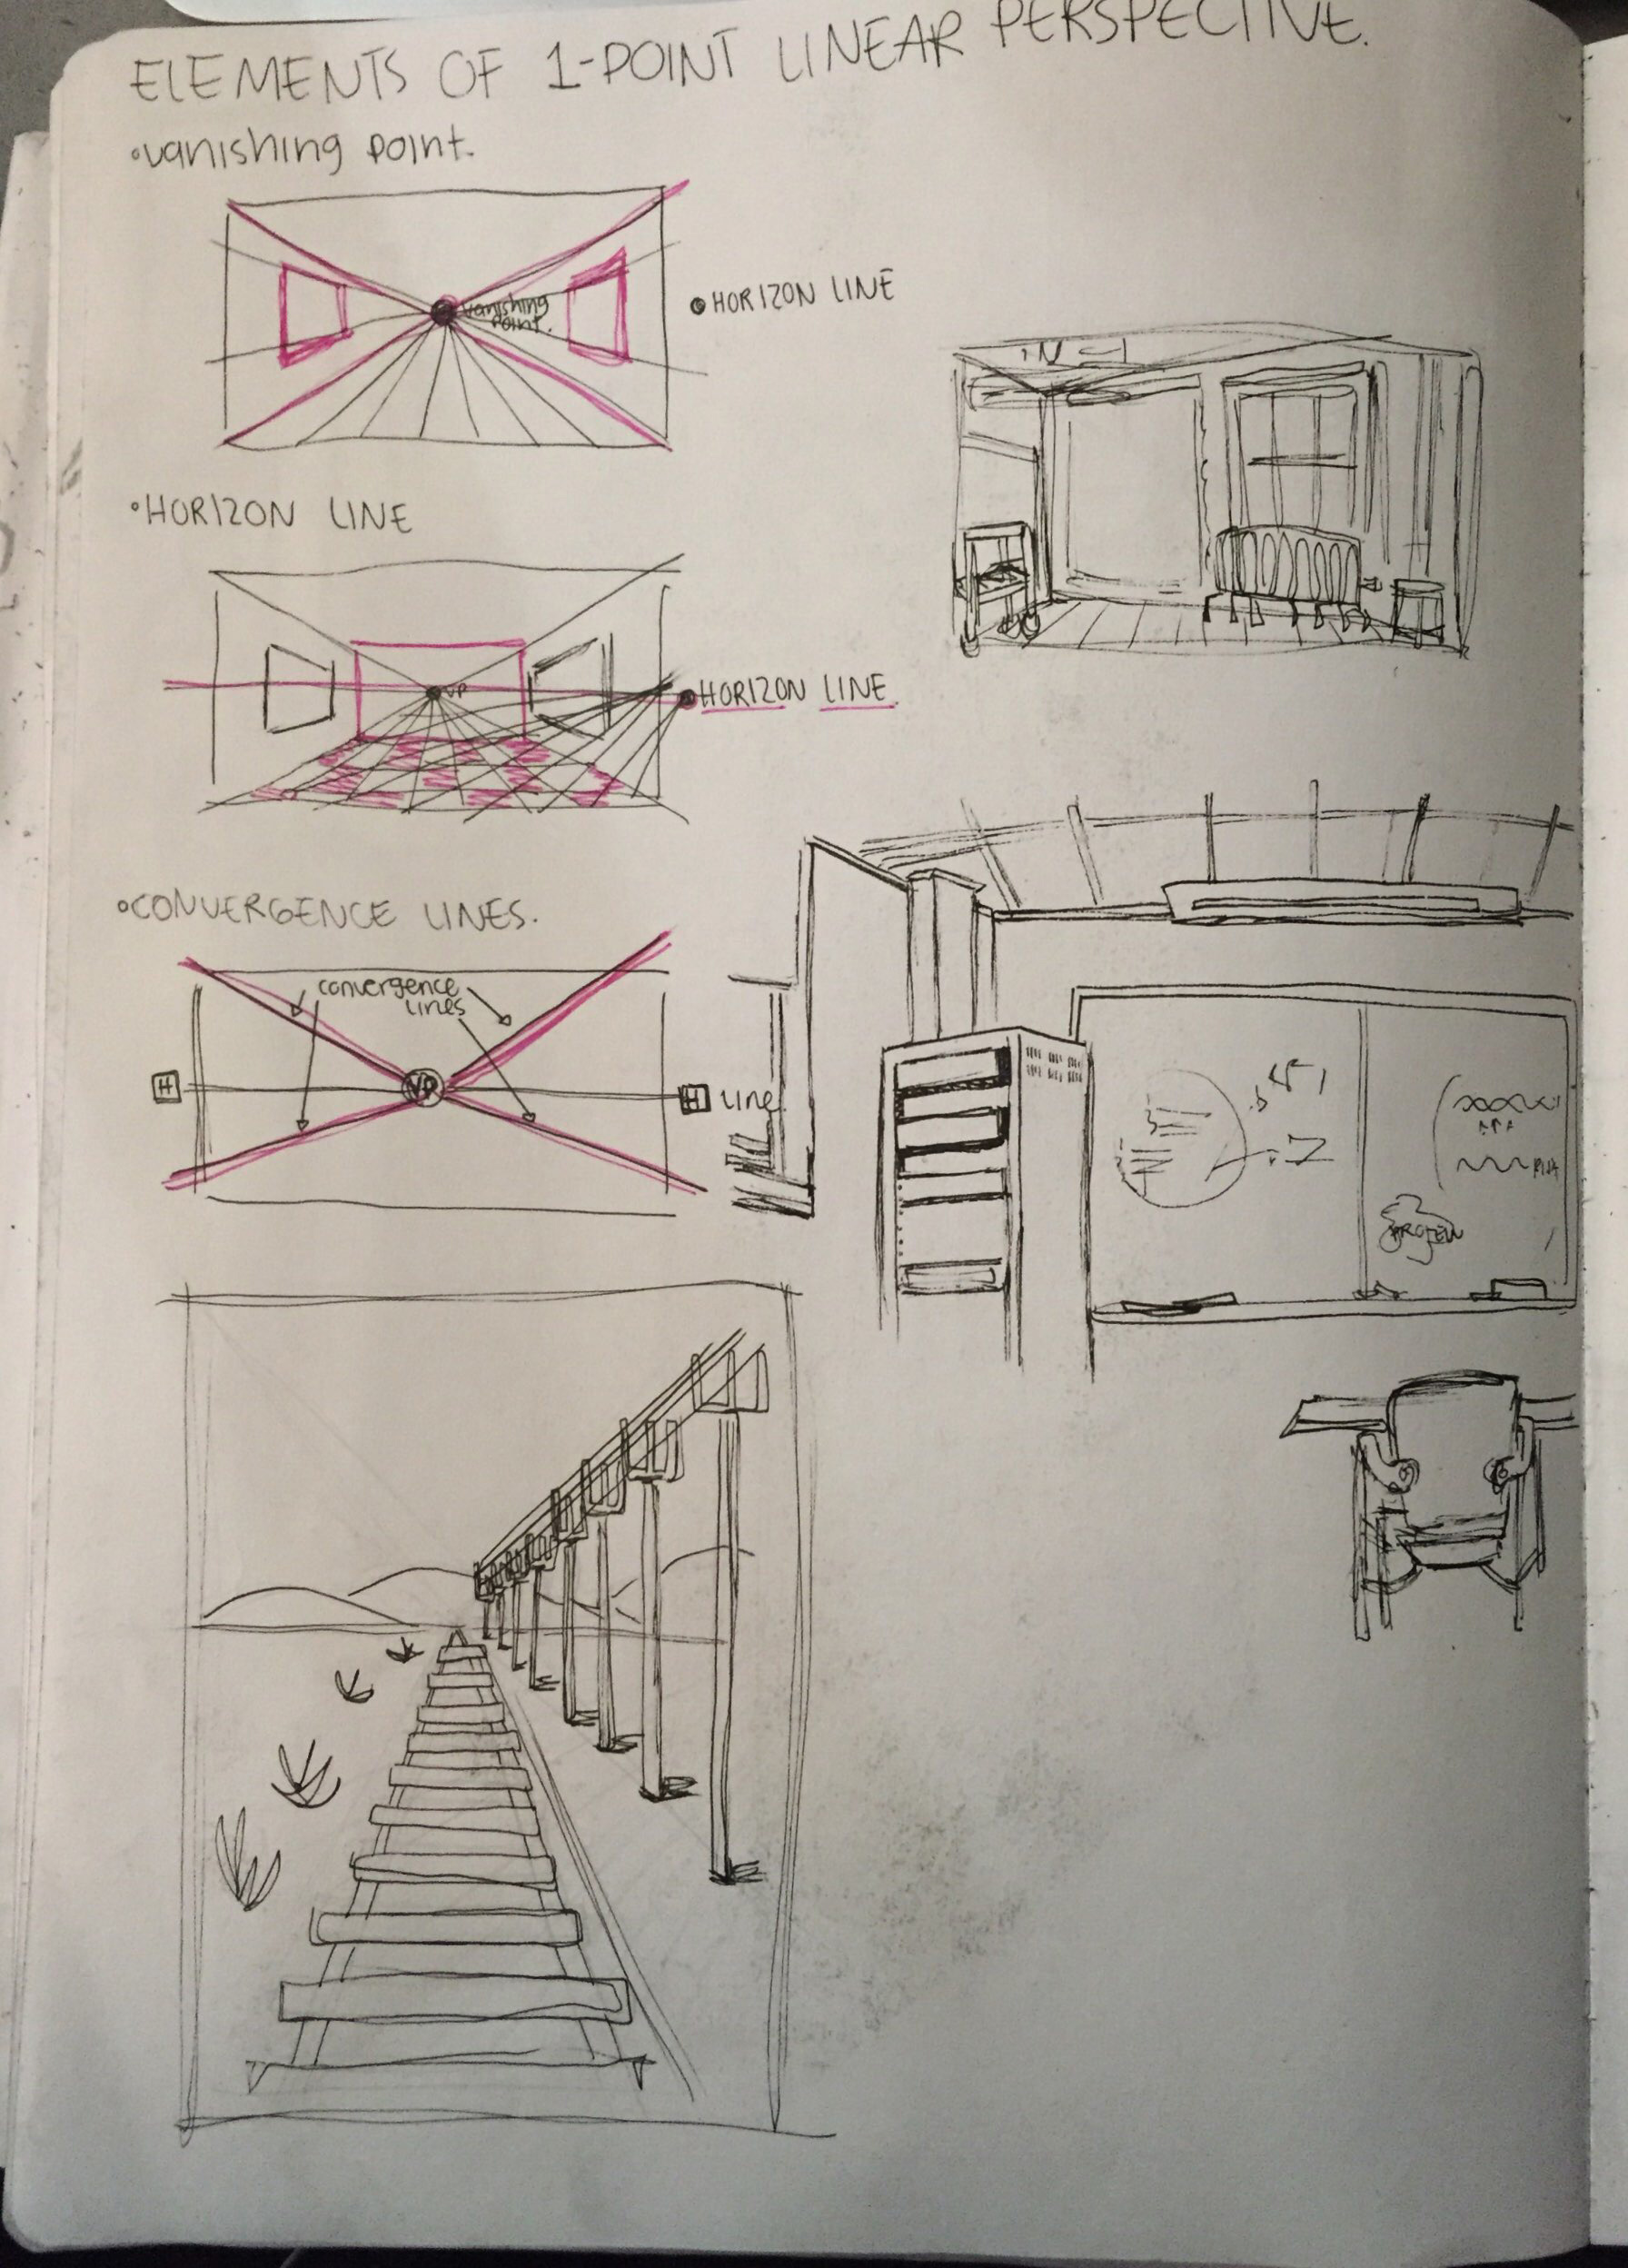 ELEMENTS OF 1-POINT LINEAR PERSPECTIVE.
•vanishing point.
vanishing
point.
• HORIZON LINE
•HORIZON LINE
VP
HORIZON LINE.
•CONVERGENCE LINES.
convergence
lines
H
VP
H Line